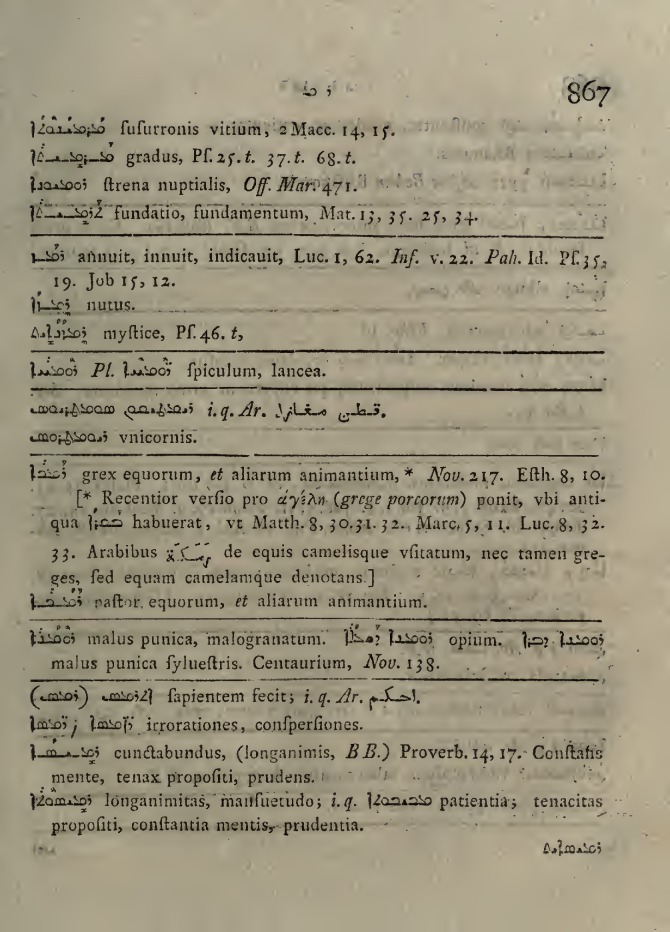 ܪ ܡ 867
ſuſurronis vitium, 2 Macc. 14, 15.
ܡܪܡܝܬܐ gradus, Pſ. 25. t. 37. t. 68. t.
ſtrena nuptialis, Off. Mar. 471.
ܬܪܡܝܬܐ fundatio, fundamentum, Mat. 13, 35. 25, 34.
ܪܡܙ annuit, innuit, indicauit, Luc. 1, 62. Inf. v. 22. Pah. Id. Pſ. 35,
19. Job 15, 12.
ܪܡܙܐ nutus.
ܪܡܙܢܐܝܬ myſtice, Pſ. 46. t,
ܪܘܡܚܐ Pl. ܪܘܡܚܐ ſpiculum, lancea.
i. q. Ar.
vnicornis.
ܪܡܟܐ grex equorum, et aliarum animantium, * Nov. 217. Eſth. 8, 10.
[* Recentior verſio pro ἀγέλη (grege porcorum) ponit, vbi anti-
qua ܒܩܪܐ habuerat, vt Matth. 8, 30. 31. 32. Marc. 5, 11. Luc. 8, 32.
33. Arabibus رمكة de equis camelisque vſitatum, nec tamen gre-
ges, ſed equam camelamque denotans.]
ܪܡܟܐ paſtor equorum, et aliarum animantium.
ܪܘܡܢܐ malus punica, malogranatum. opium. ܪܘܡܢܐ ܕܒܪܐ
malus punica ſylueſtris. Centaurium, Nov. 138.
ſapientem fecit; i. q. Ar. احكم.
irrorationes, conſperſiones.
ܪܡܝܣܐ cunctabundus, (longanimis, BB.) Proverb. 14, 17. Conſtanſis
mente, tenax propoſiti, prudens.
ܪܡܝܣܘܬܐ longanimitas, manſuetudo; i. q. patientia; tenacitas
propoſiti, conſtantia mentis, prudentia.
ܪܡܝܣܐܝܬ